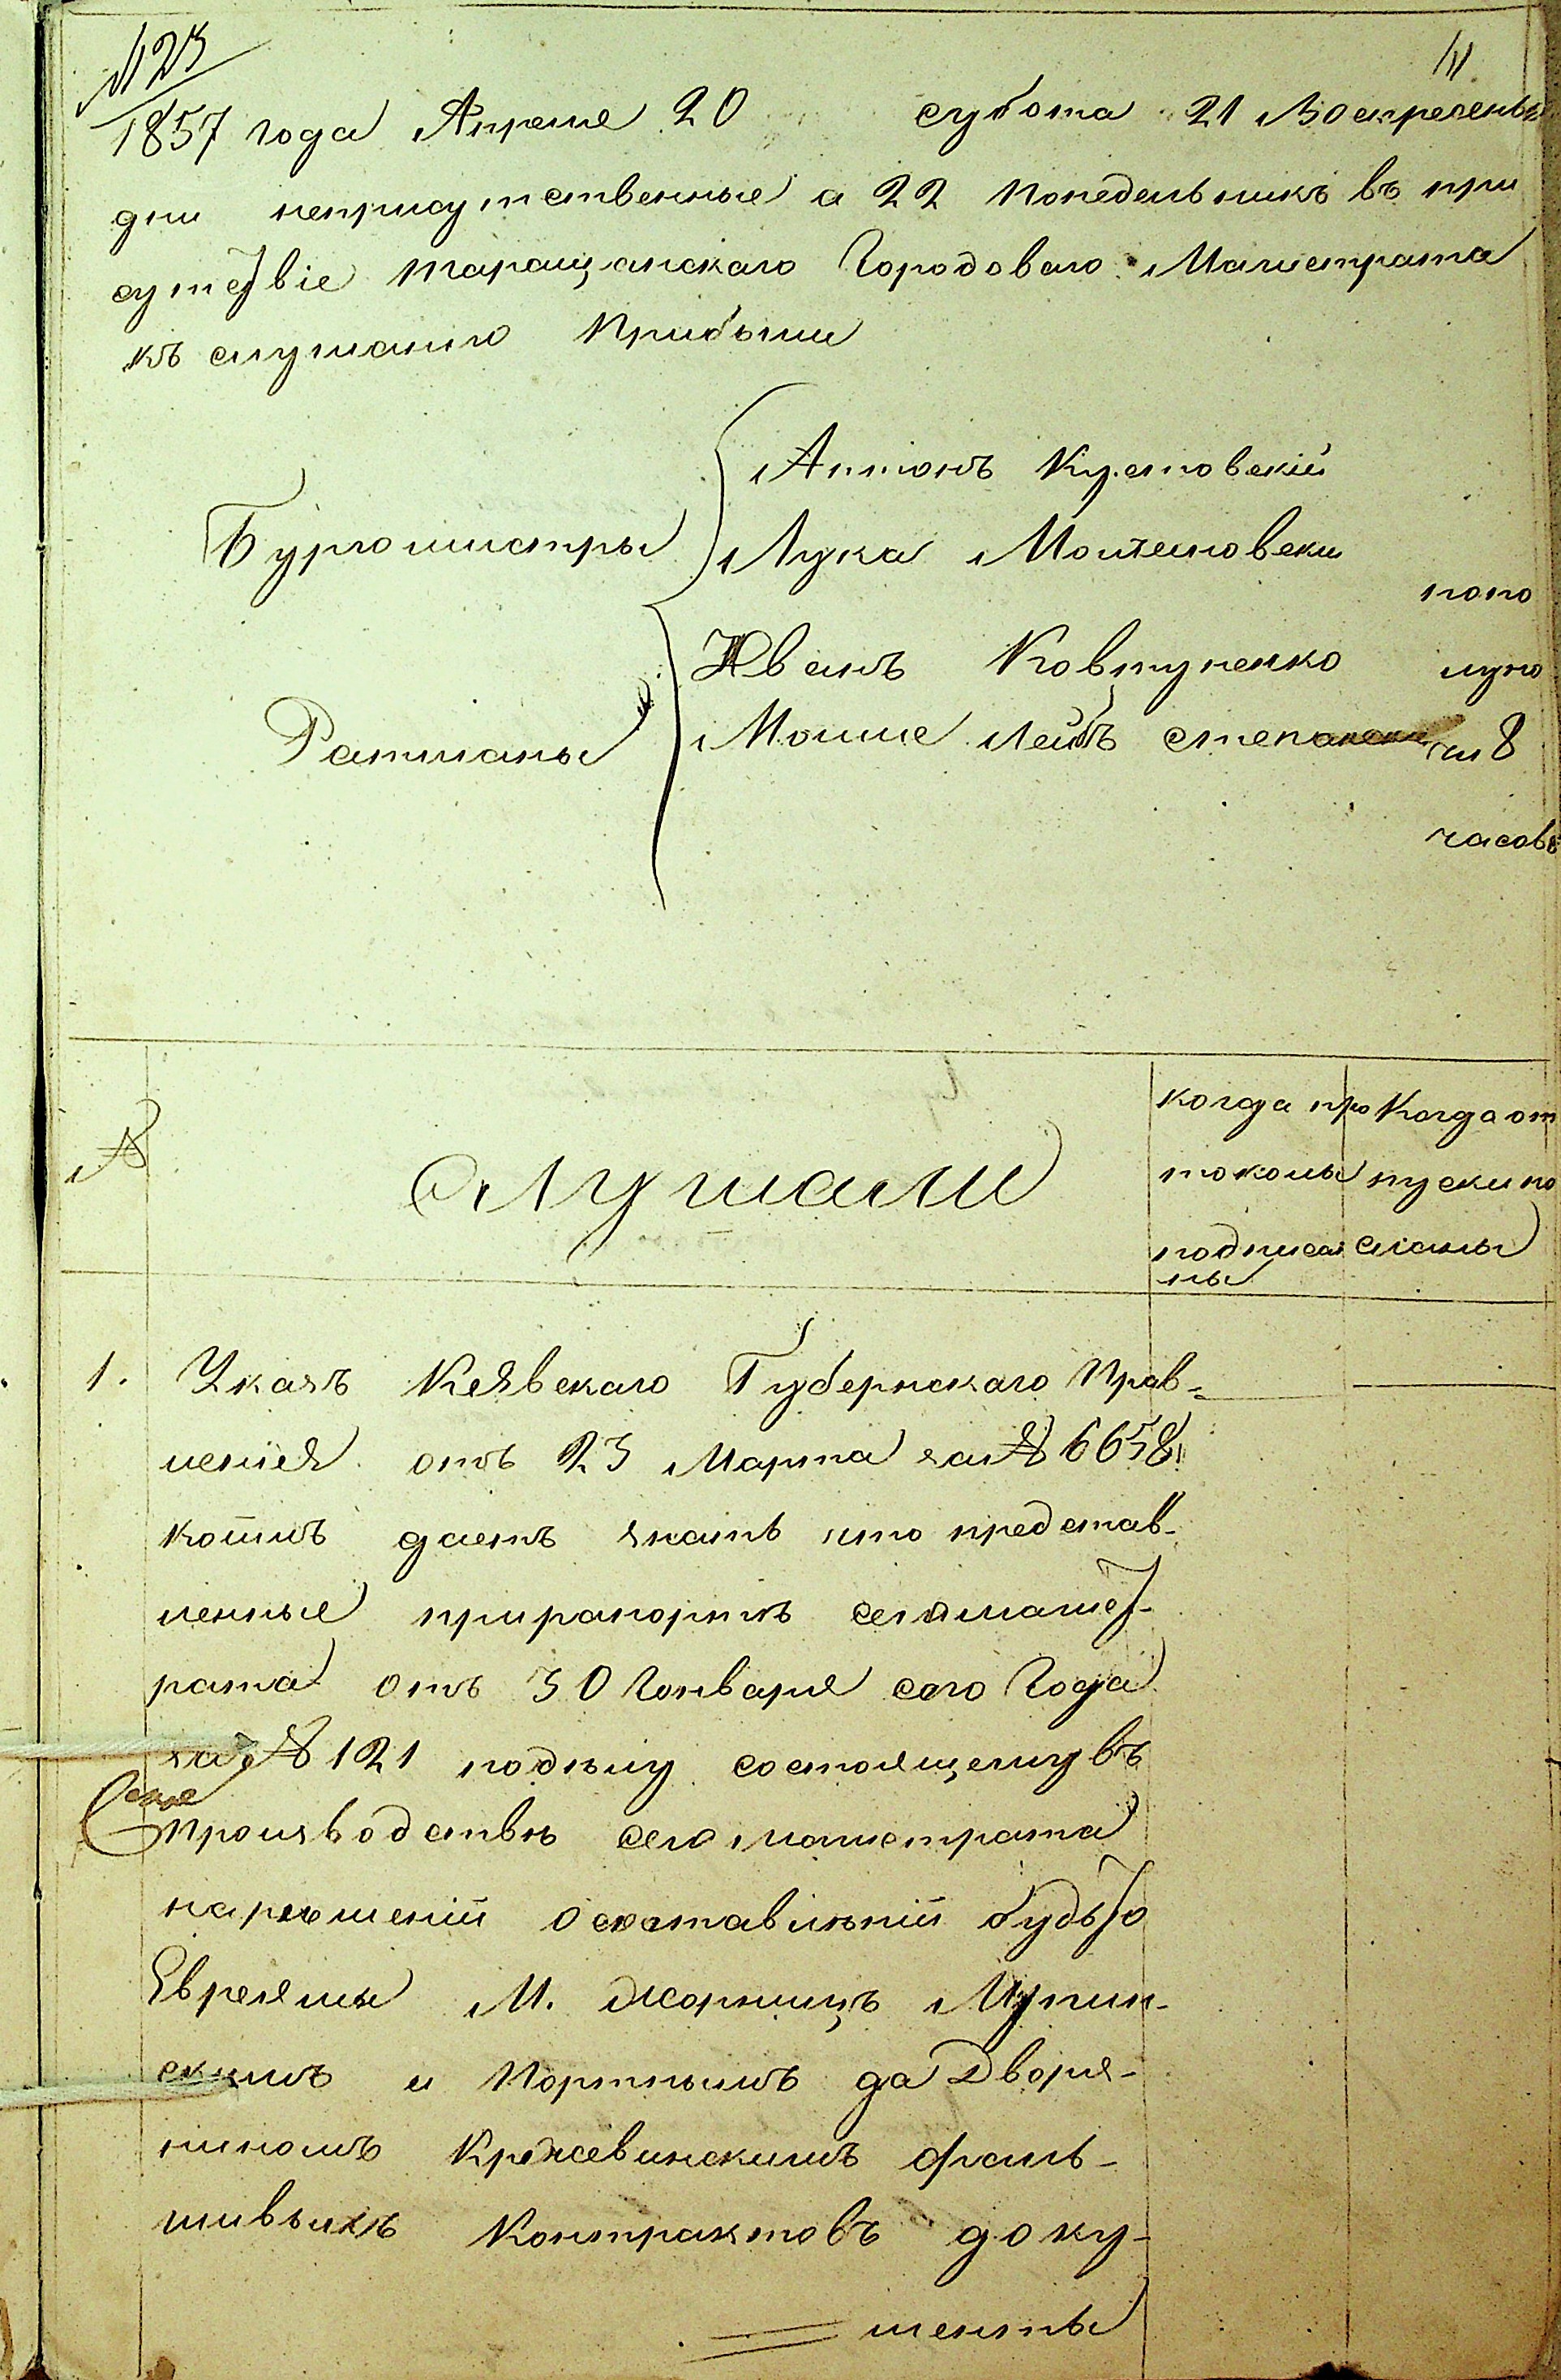 № 23
1857 года Апреля 20 субота 21 Воскресенье
дни неприсутственные а 22 Понедельникъ въ при
сутствіе Таращанскаго Городоваго Магистрата
къ слушанию Прибыли
Бургомистры
Антонъ
Лука
попо
Ратманы
Иванъ Ковтуненко
луно
Мошке Лейбъ степански
чи 8
часовъ
№
Слушали
когда про
токолы
подписа
ны
Когда от
пуски по
сланы
1. Указъ Кеявскаго Губернскаго Прав-
ленія отъ 23 Марта за № 6658
коимъ даетъ знать что представ-
ленные прирапортѣ сегомагест-
рата отъ 30 Генваря сего Года
за № 121 подѣлу состоящему въ
производствѣ сего магистрата
нарѣшеніи осоставленіи будьто
Евреямы М. Жорнищъ
скимъ и Портнымъ да Дворя-
ниномъ Кржевинскимъ фаль-
шивыхъ Контрактовъ доку-
менты